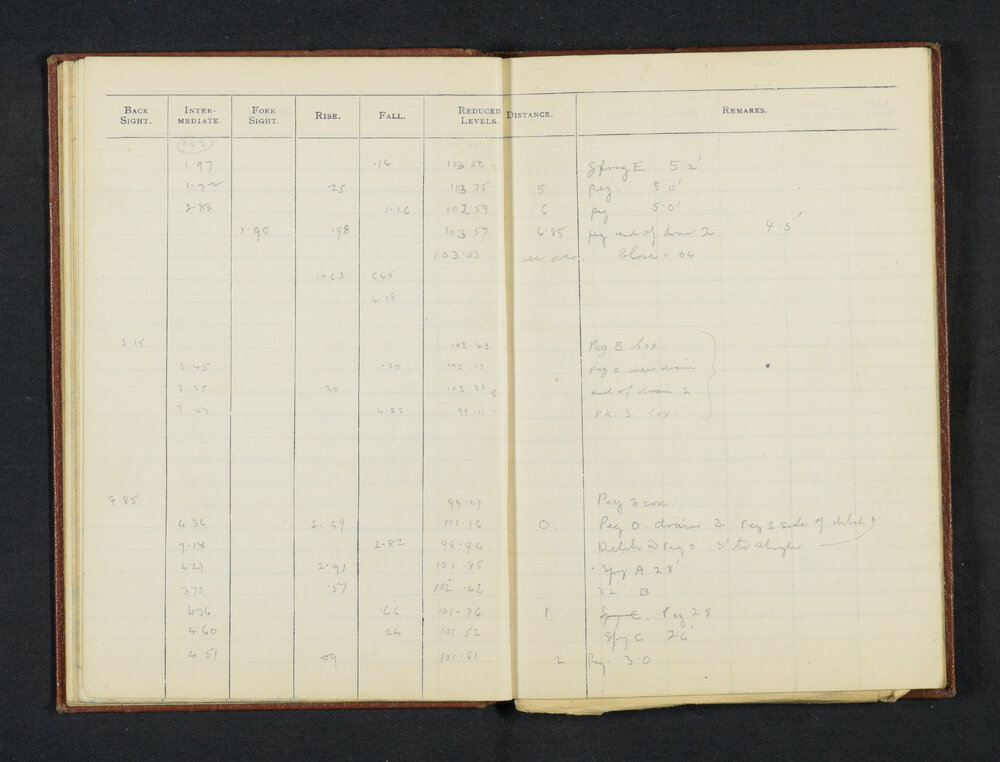 BACK SIGHT. INTER-MEDIATE. FORE SIGHT. RISE. FALL. REDUCED LEVELS. DISTANCE. REMARKS.
1.97 .16 103.50 E 5.2'
1.72 .25 103.75 5 peg. 5.0'
2.88 1.16 102.59 6 peg 5.0'
1.90 .98 103.57 6.85 peg end of drain 2 4.5'
103.53 see over Close = .04
4.18
3.15 103.43 Peg B box
3.45 .30 103.13 peg 0 new drain
3.25 .20 103.33 end of drain 2
7.47 4.22 99.11 3 Cox.
99.27 Peg 3 cox.
4.36 2.49 101.76 0. Peg 0. drain 3. Peg S side of ditch
7.18 2.82 98.94 Ditch @ Peg 0 3' to shingle
4.27 2.91 101.85 Spg A 2.8'
3.70 .57 102.42 3.2 B
4.36 .66 101.76 1 Peg 2.8
4.60 .24 101.52 Spg C 2.6'
4.51 .09 101.61 2 Peg. 3.0